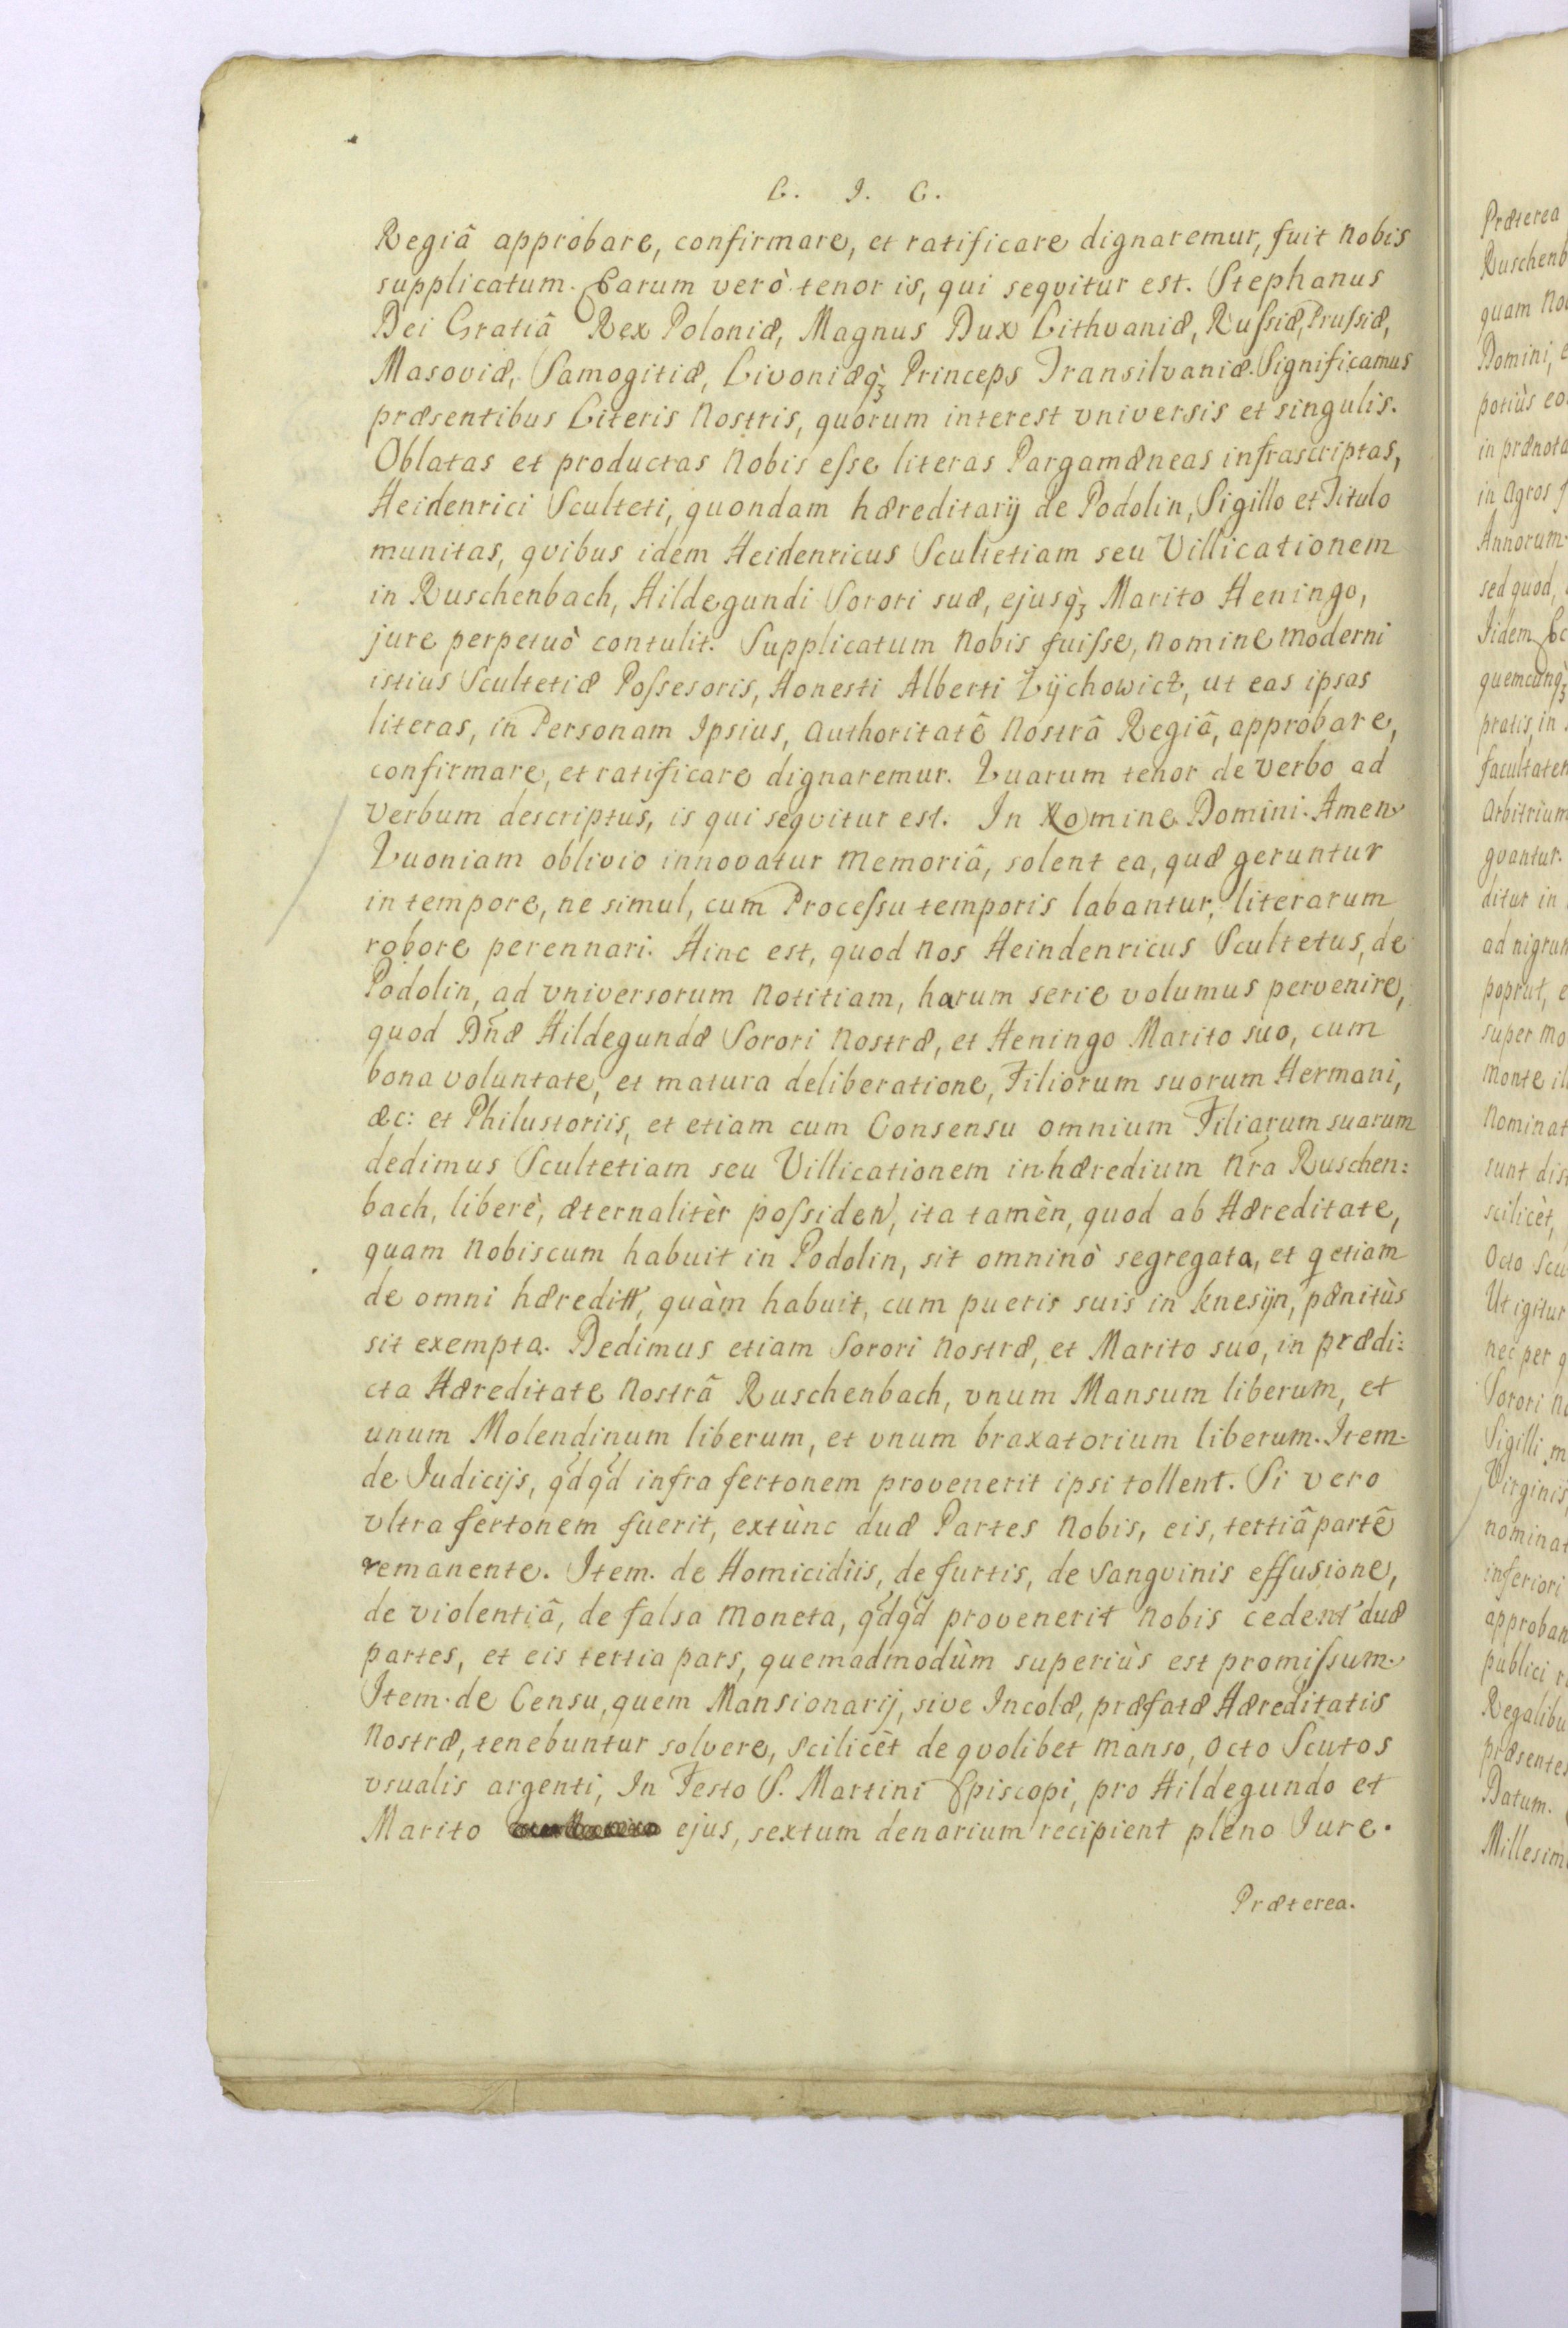 L. J. C.
Regiâ approbare, confirmare, et ratificare dignaremur, fuit Nobis
supplicatum. Earum verò tenor is, qui seqvitur est. Stephanus
Dei Gratiâ Rex Poloniæ, Magnus Dux Lithvaniæ, Russiæ, Prussiæ,
Masoviæ, Samogitiæ, Livoniæq̀₃ Princeps Transilvaniæ. Significamus
præsentibus Literis Nostris, quorum interest vniversis et singulis.
Oblatas et productas Nobis esse literas Pargamæneas infrascriptas,
Heidenrici Sculteti, quondam hæreditarij de Podolin, Sigillo et Titulo
munitas, qvibus idem Heidenricus Scultetiam seu Villicationem
in Ruschenbach, Hildegundi Sorori suæ, ejusq̀₃ Marito Heningo,
jure perpetuò contulit. Supplicatum Nobis fuisse, nomine moderni
istius Scultetiæ Possesoris, Honesti Alberti Zÿchowicz, ut eas ipsas
literas, in Personam Ipsius, Authoritatê Nostrâ Regiâ, approbare,
confirmare, et ratificare dignaremur. Quarum tenor de verbo ad
verbum descriptus, is qui seqvitur est. In Nomine Domini. Amen
Quoniam oblivio innovatur memoriâ, solent ea, quæ geruntur
in tempore, ne simul, cum Processu temporis labantur, literarum
robore perennari. Hinc est, quod Nos Heindenricus Scultetus, de
Podolin, ad vniversorum Notitiam, harum serie volumus pervenire,
quod Dnæ Hildegundæ Sorori Nostræ, et Heningo Marito suo, cum
bona voluntate, et matura deliberatione, Filiorum suorum Hermani,
æc: et Philustoriis, et etiam cum Consensu omnium Filiarum suarum
dedimus Scultetiam seu Villicationem in hæredium Nra Ruschen:
bach, liberè, æternalitèr possiden, ita tamèn, quod ab Hæreditate,
quam Nobiscum habuit in Podolin, sit omninò segregata, et q etiam
de omni hæreditt, quàm habuit, cum pueris suis in Knesÿn, pænitùs
sit exempta. Dedimus etiam Sorori Nostræ, et Marito suo, in prædi:
cta Hæreditate Nostrâ Ruschenbach, vnum Mansum liberum, et
unum Molendinum liberum, et vnum braxatorium liberum. Item.
de Judicijs, qdqd infra fertonem provenerit ipsi tollent. Si vero
vltra fertonem fuerit, extùnc duæ Partes Nobis, eis, tertiâ partê
remanente. Item. de Homicidiis, de furtis, de Sangvinis effusione,
de violentiâ, de falsa Moneta, qdqd provenerit Nobis cedent duæ
partes, et eis tertia pars, quemadmodùm superiùs est promissum.
Item. de Censu, quem Mansionarij, sive Incolæ, præfatæ Hæreditatis
Nostræ, tenebuntur solvere, Scilicèt de qvolibet manso, Octo Scutos
vsualis argenti, In Festo S. Martini Episcopi, pro Hildegundo et
Marito ejus, sextum denarium recipient pleno Jure.
Præterea.
Præterea
Ruschenb
quam No
Domini, e
potiùs eo
in prænota
in Agros
Annorum
sed quod,
Iidem
quemcunq̀₃
pratis, in
facultatem
Arbitrium
gvantur.
ditur in
ad nigrum
poprut, e
super mo
Monte il
Nominat
sunt dis
scilicèt,
Octo Scu
Ut igitur
nec per q
Sorori No
Sigilli m
Virginis,
nominat
inferiori
approban
publici r
Regalibu
præsentes
Datum.
Millesim